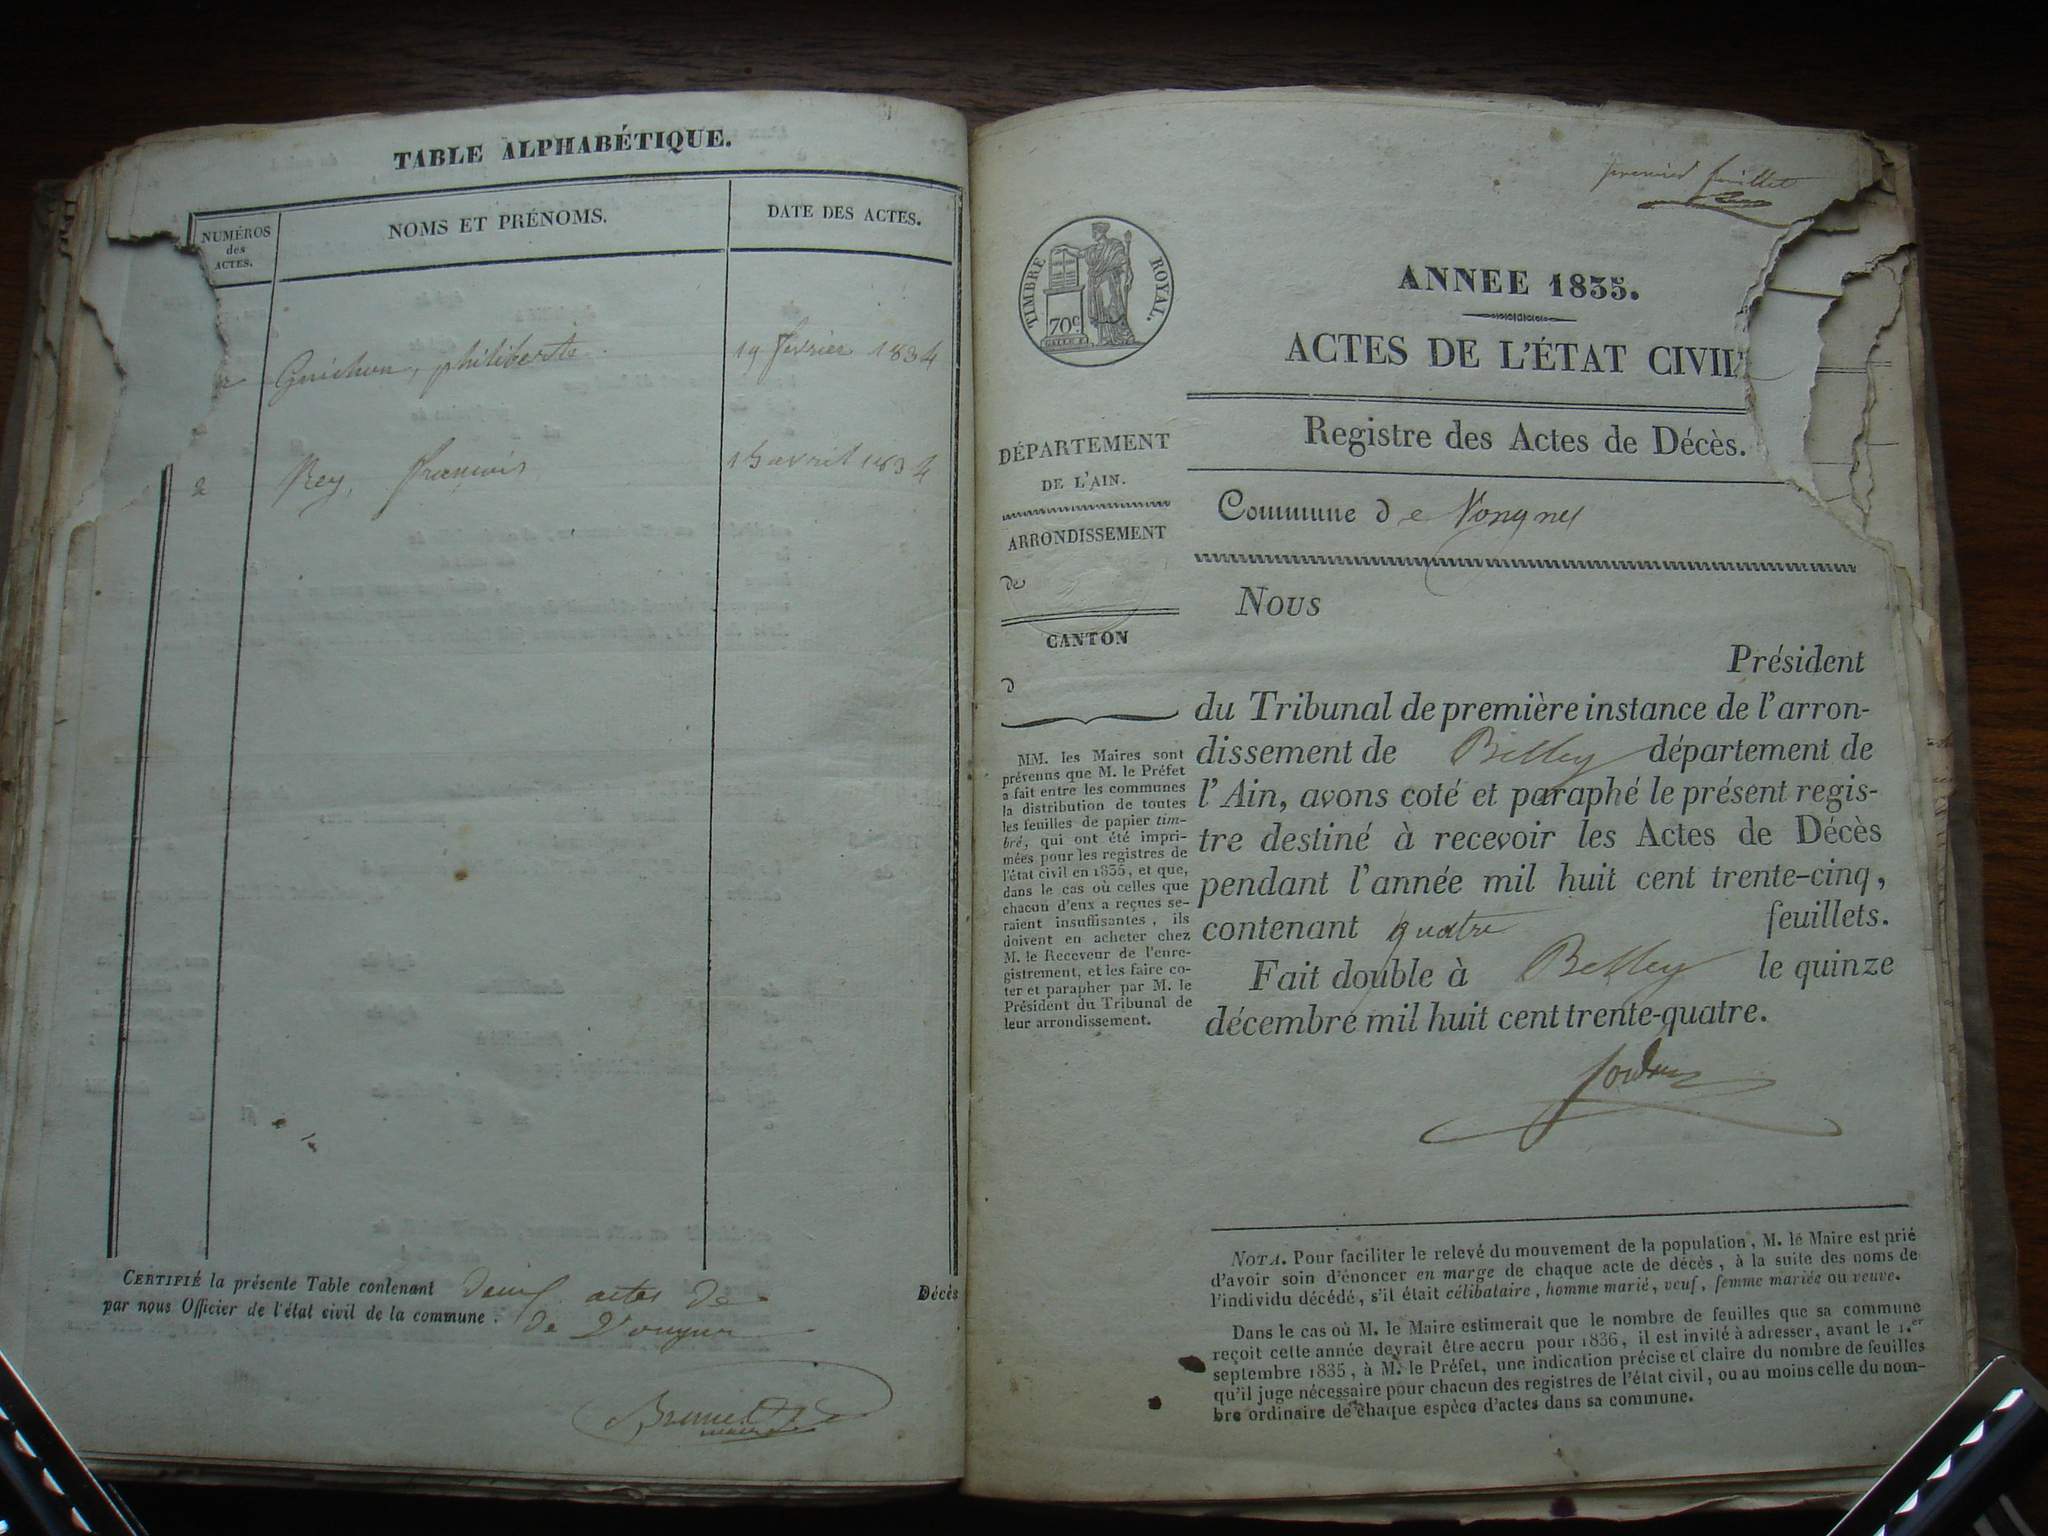 TABLE ALPHABÉTIQUE.
NUMÉROS
des
ACTES.
NOMS ET PRÉNOMS.
DATE DES ACTES.
Guichon, philiberte
19 février 1834
2 Rey, francois
15 avril 1834
CERTIFIÉ la présente Table contenant deux actes de Décès
par nous Officier de l'état civil de la commune : de Vongne
Brunet
maire
premier feuillet
TIMBRE ROYAL.
70c
ANNEE 1835.
ACTES DE L'ÉTAT CIVIL
Registre des Actes de Décès.
Commune de Vongnes
DÉPARTEMENT
DE L'AIN.
ARRONDISSEMENT
de
CANTON
d
MM. les Maires sont
prévenus que M. le Préfet
a fait entre les communes
la distribution de toutes
les feuilles de papier tim-
bré, qui ont été impri-
mées pour les registres de
l'état civil en 1835, et que,
dans le cas où celles que
chacun d'eux a reçues se-
raient insuffisantes, ils
doivent en acheter chez
M. le Receveur de l'enre-
gistrement, et les faire co-
ter et parapher par M. le
Président du Tribunal de
leur arrondissement.
Nous
Président
du Tribunal de première instance de l'arron-
dissement de Belley département de
l'Ain, avons coté et paraphé le présent regis-
tre destiné à recevoir les Actes de Décès
pendant l'année mil huit cent trente-cinq,
contenant quatre feuillets.
Fait double à Belley le quinze
décembre mil huit cent trente-quatre.
NOTA. Pour faciliter le relevé du mouvement de la population, M. le Maire est prié
d'avoir soin d'énoncer en marge de chaque acte de décès, à la suite des noms de
l'individu décédé, s'il était célibataire, homme marié, veuf, femme mariée ou veuve.
Dans le cas où M. le Maire estimerait que le nombre de feuilles que sa commune
reçoit cette année devrait être accru pour 1836, il est invité à adresser, avant le 1.er
septembre 1835, à M. le Préfet, une indication précise et claire du nombre de feuilles
qu'il juge nécessaire pour chacun des registres de l'état civil, ou au moins celle du nom-
bre ordinaire de chaque espèce d'actes dans sa commune.